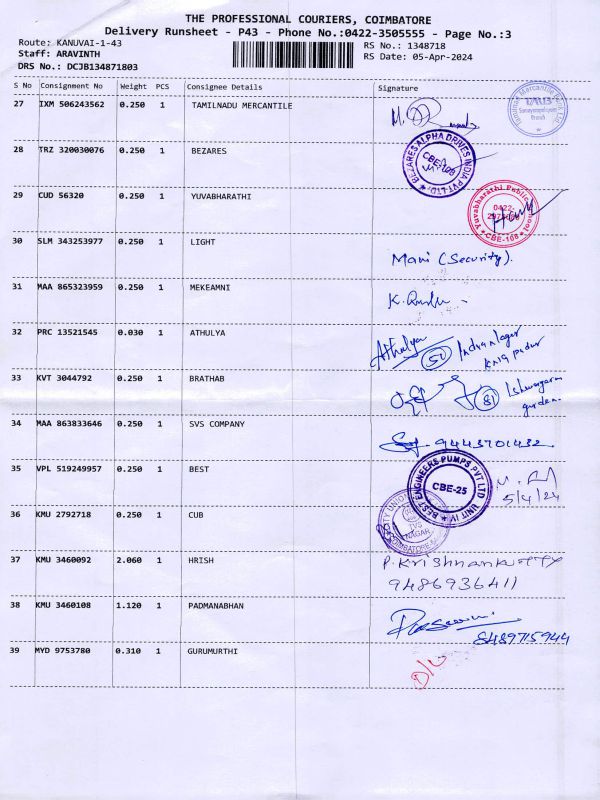 THE PROFESSIONAL COURIERS, COIMBATORE
Delivery Runsheet - P43 - Phone No.:0422-3505555 - Page No.:3
Route: KANUVAI-1-43
RS No.: 1348718
Staff: ARAVINTH
RS Date: 05-Apr-2024
DRS No.: DCJB134871803
S No Consignment No Weight PCS Consignee Details Signature
27 IXM 506243562 0.250 1 TAMILNADU MERCANTILE
28 TRZ 320030076 0.250 1 BEZARES
BEZARES ALPHA DRIVES INDIA PVT LTD
CBE-108
29 CUD 56320 0.250 1 YUVABHARATHI
Yuvabharathi Public School
0422-
CBE-108
30 SLM 343253977 0.250 1 LIGHT
Mani (Security).
31 MAA 865323959 0.250 1 MEKEAMNI
32 PRC 13521545 0.030 1 ATHULYA
Athulya
33 KVT 3044792 0.250 1 BRATHAB
34 MAA 863833646 0.250 1 SVS COMPANY
9443701432
35 VPL 519249957 0.250 1 BEST
BEST ENGINEERS PUMPS PVT LTD UNIT IV
CBE-25
5/4/24
36 KMU 2792718 0.250 1 CUB
CITY UNION
TVS
NAGAR
COIMBATORE
37 KMU 3460092 2.060 1 HRISH
P. Krishnankutty
9486936411
38 KMU 3460108 1.120 1 PADMANABHAN
8489715944
39 MYD 9753780 0.310 1 GURUMURTHI